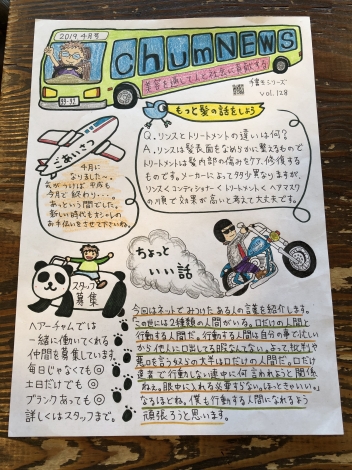 2019.4月号
Chum NEWS
美容を通して人と社会に貢献する
vol.128
もっと髪の話をしよう
Q.リンスとトリートメントの違いは何?
A.リンスは髪表面をなめらかに整えるもので
トリートメントは髪内部の傷みをケア、修復する
ものです。メーカーによって多少異なりますが、
リンス<コンディショナー<トリートメント<ヘアマスク
の順で効果が高いと考えて大丈夫です。
ごあいさつ
4月に
なりました〜。
気がつけば平成も
今月で終わり・・・。
あっという間でした。
新しい時代もオシャレの
お手伝いをさせて下さいね。
スタッフ
募集
ヘアーチャムでは
一緒に働いてくれる
仲間を募集しています。
毎日じゃなくても◎
土日だけでも◎
ブランクあっても◎
詳しくはスタッフまで。
ちょっと
いい話
今回はネットでみつけたある人の言葉を紹介します。
この世には2種類の人間がいる。口だけの人間と
行動する人間だ。行動する人間は自分の事で忙しい
から他人に口出してる暇なんてない。よって批判や
悪口を言う奴らの大半は口だけの人間だ。口だけ
達者で行動しない連中に何言われようと関係
ねぇ。眼中に入れる必要すらない。ほっときゃいい。
なるほどね。僕も行動する人間になれるよう
頑張ろうと思います。